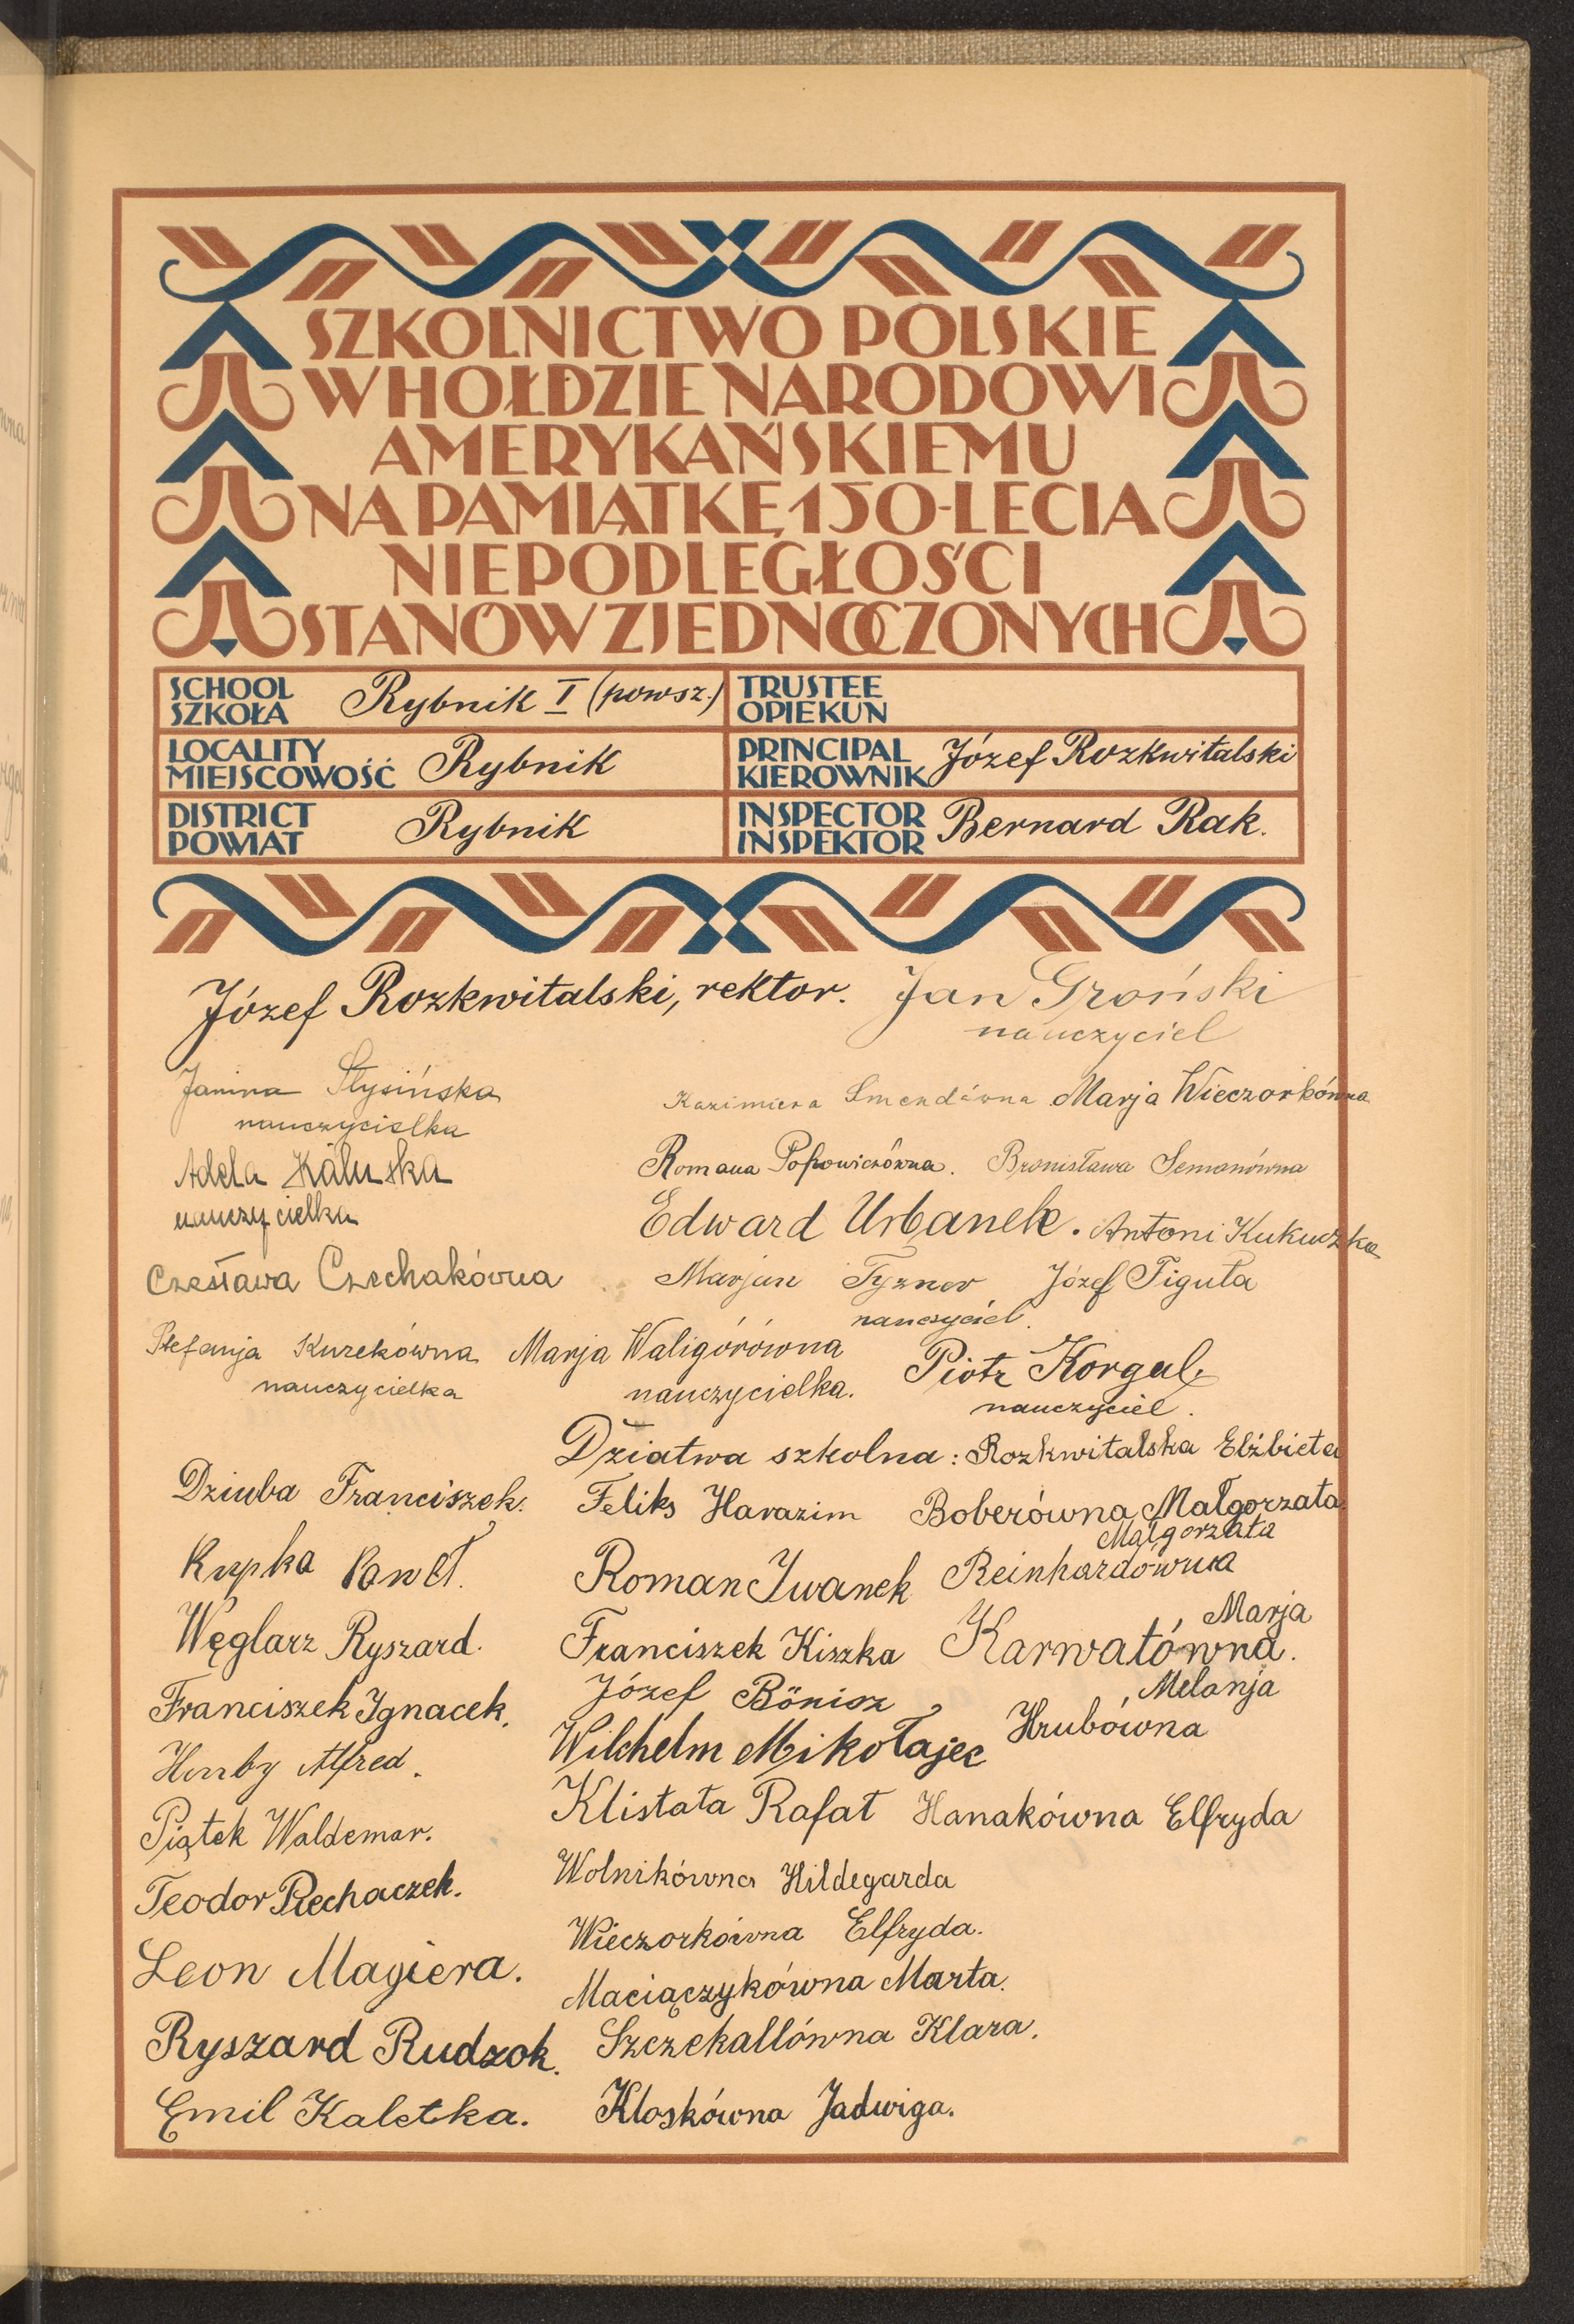 SZKOLNICTWO POLSKIE
W HOŁDZIE NARODOWI
AMERYKAŃSKIEMU
NA PAMIĄTKĘ 150-LECIA
NIEPODLEGŁOŚCI
STANÓW ZJEDNOCZONYCH
SCHOOL
SZKOŁA
Rybnik I (powsz.)
TRUSTEE
OPIEKUN
LOCALITY
MIEJSCOWOŚĆ
Rybnik
PRINCIPAL
KIEROWNIK
Józef Rozkwitalski
DISTRICT
POWIAT
Rybnik
INSPECTOR
INSPEKTOR
Bernard Rak.
Józef Rozkwitalski, rektor.
Jan Groński
nauczyciel
Janina Stysińska
nauczycielka
Kazimiera Smendówna
Marja Wieczorkówna
Adela Kałuska
nauczycielka
Romana Popowiczówna.
Bronisława Semanówna
Edward Urbanek.
Antoni Kukuczka
Czesława Czechakówna
Marjan Tyzner
nauczyciel.
Józef Figuła
Stefanja Kurekówna
nauczycielka
Marja Waligórówna
nauczycielka.
Piotr Korgul
nauczyciel.
Dziatwa szkolna: Rozkwitalska Elżbieta
Dziuba Franciszek.
Feliks Harazim
Boberówna Małgorzata
Kupka Paweł.
Roman Iwanek
Małgorzata
Reinhardówna
Węglarz Ryszard.
Franciszek Kiszka
Marja
Karwatówna.
Franciszek Ignacek.
Józef Bönisz
Melanja
Hrubówna
Alfred.
Wilchelm Mikołajec
Piątek Waldemar.
Klistała Rafał
Hanakówna Elfryda
Teodor Piechaczek.
Wolnikówna Hildegarda
Leon Magiera.
Wieczorkówna Elfryda.
Maciączykówna Marta.
Ryszard Rudzok.
Szczekallówna Klara.
Emil Kaletka.
Kloskówna Jadwiga.